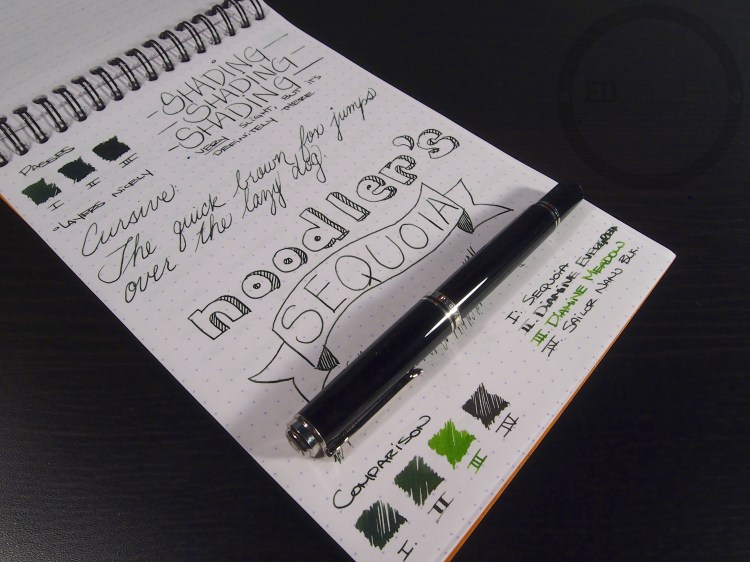 SHADING
SHADING
SHADING
• VERY SLIGHT, BUT IT'S
DEFINITELY THERE
PASSES
I II III
- LAYERS NICELY
Cursive:
The quick brown fox jumps
over the lazy dog.
noodler's
SEQUOIA
I: SEQUOIA
II: DIAMINE EVERGREEN
III: DIAMINE MEADOW
IV: SAILOR NANO BLK.
COMPARISON
I. II III IV
ED